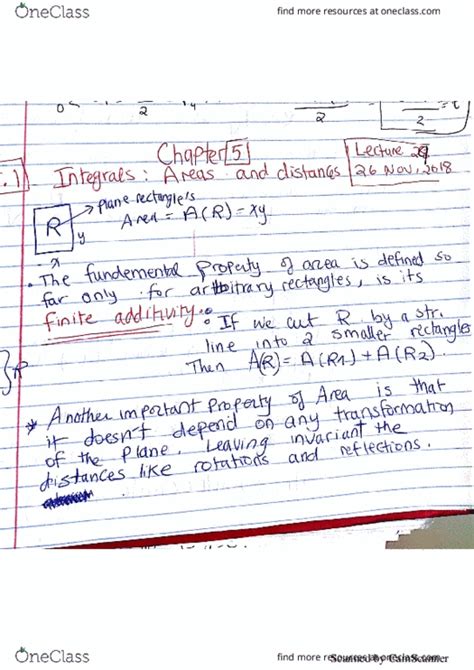 OneClass
find more resources at oneclass.com
0
2
2
2
Chapter [5]
Lecture 29
.1) Integrals: Areas and distances
26 Nov, 2018
→ plane rectangle's
R
y
Area = A(R) = xy
• The fundemental Property of area is defined so
far only for arbitrary rectangles, is its
finite additivity: If we cut R by a str.
line into 2 smaller rectangles
Then A(R) = A(R1) + A(R2).
* Another important Property of Area is that
it doesn't depend on any transformation
of the plane. Leaving invariant the
distances like rotations and reflections.
OneClass
find more resources at oneclass.com
Scanned by CamScanner